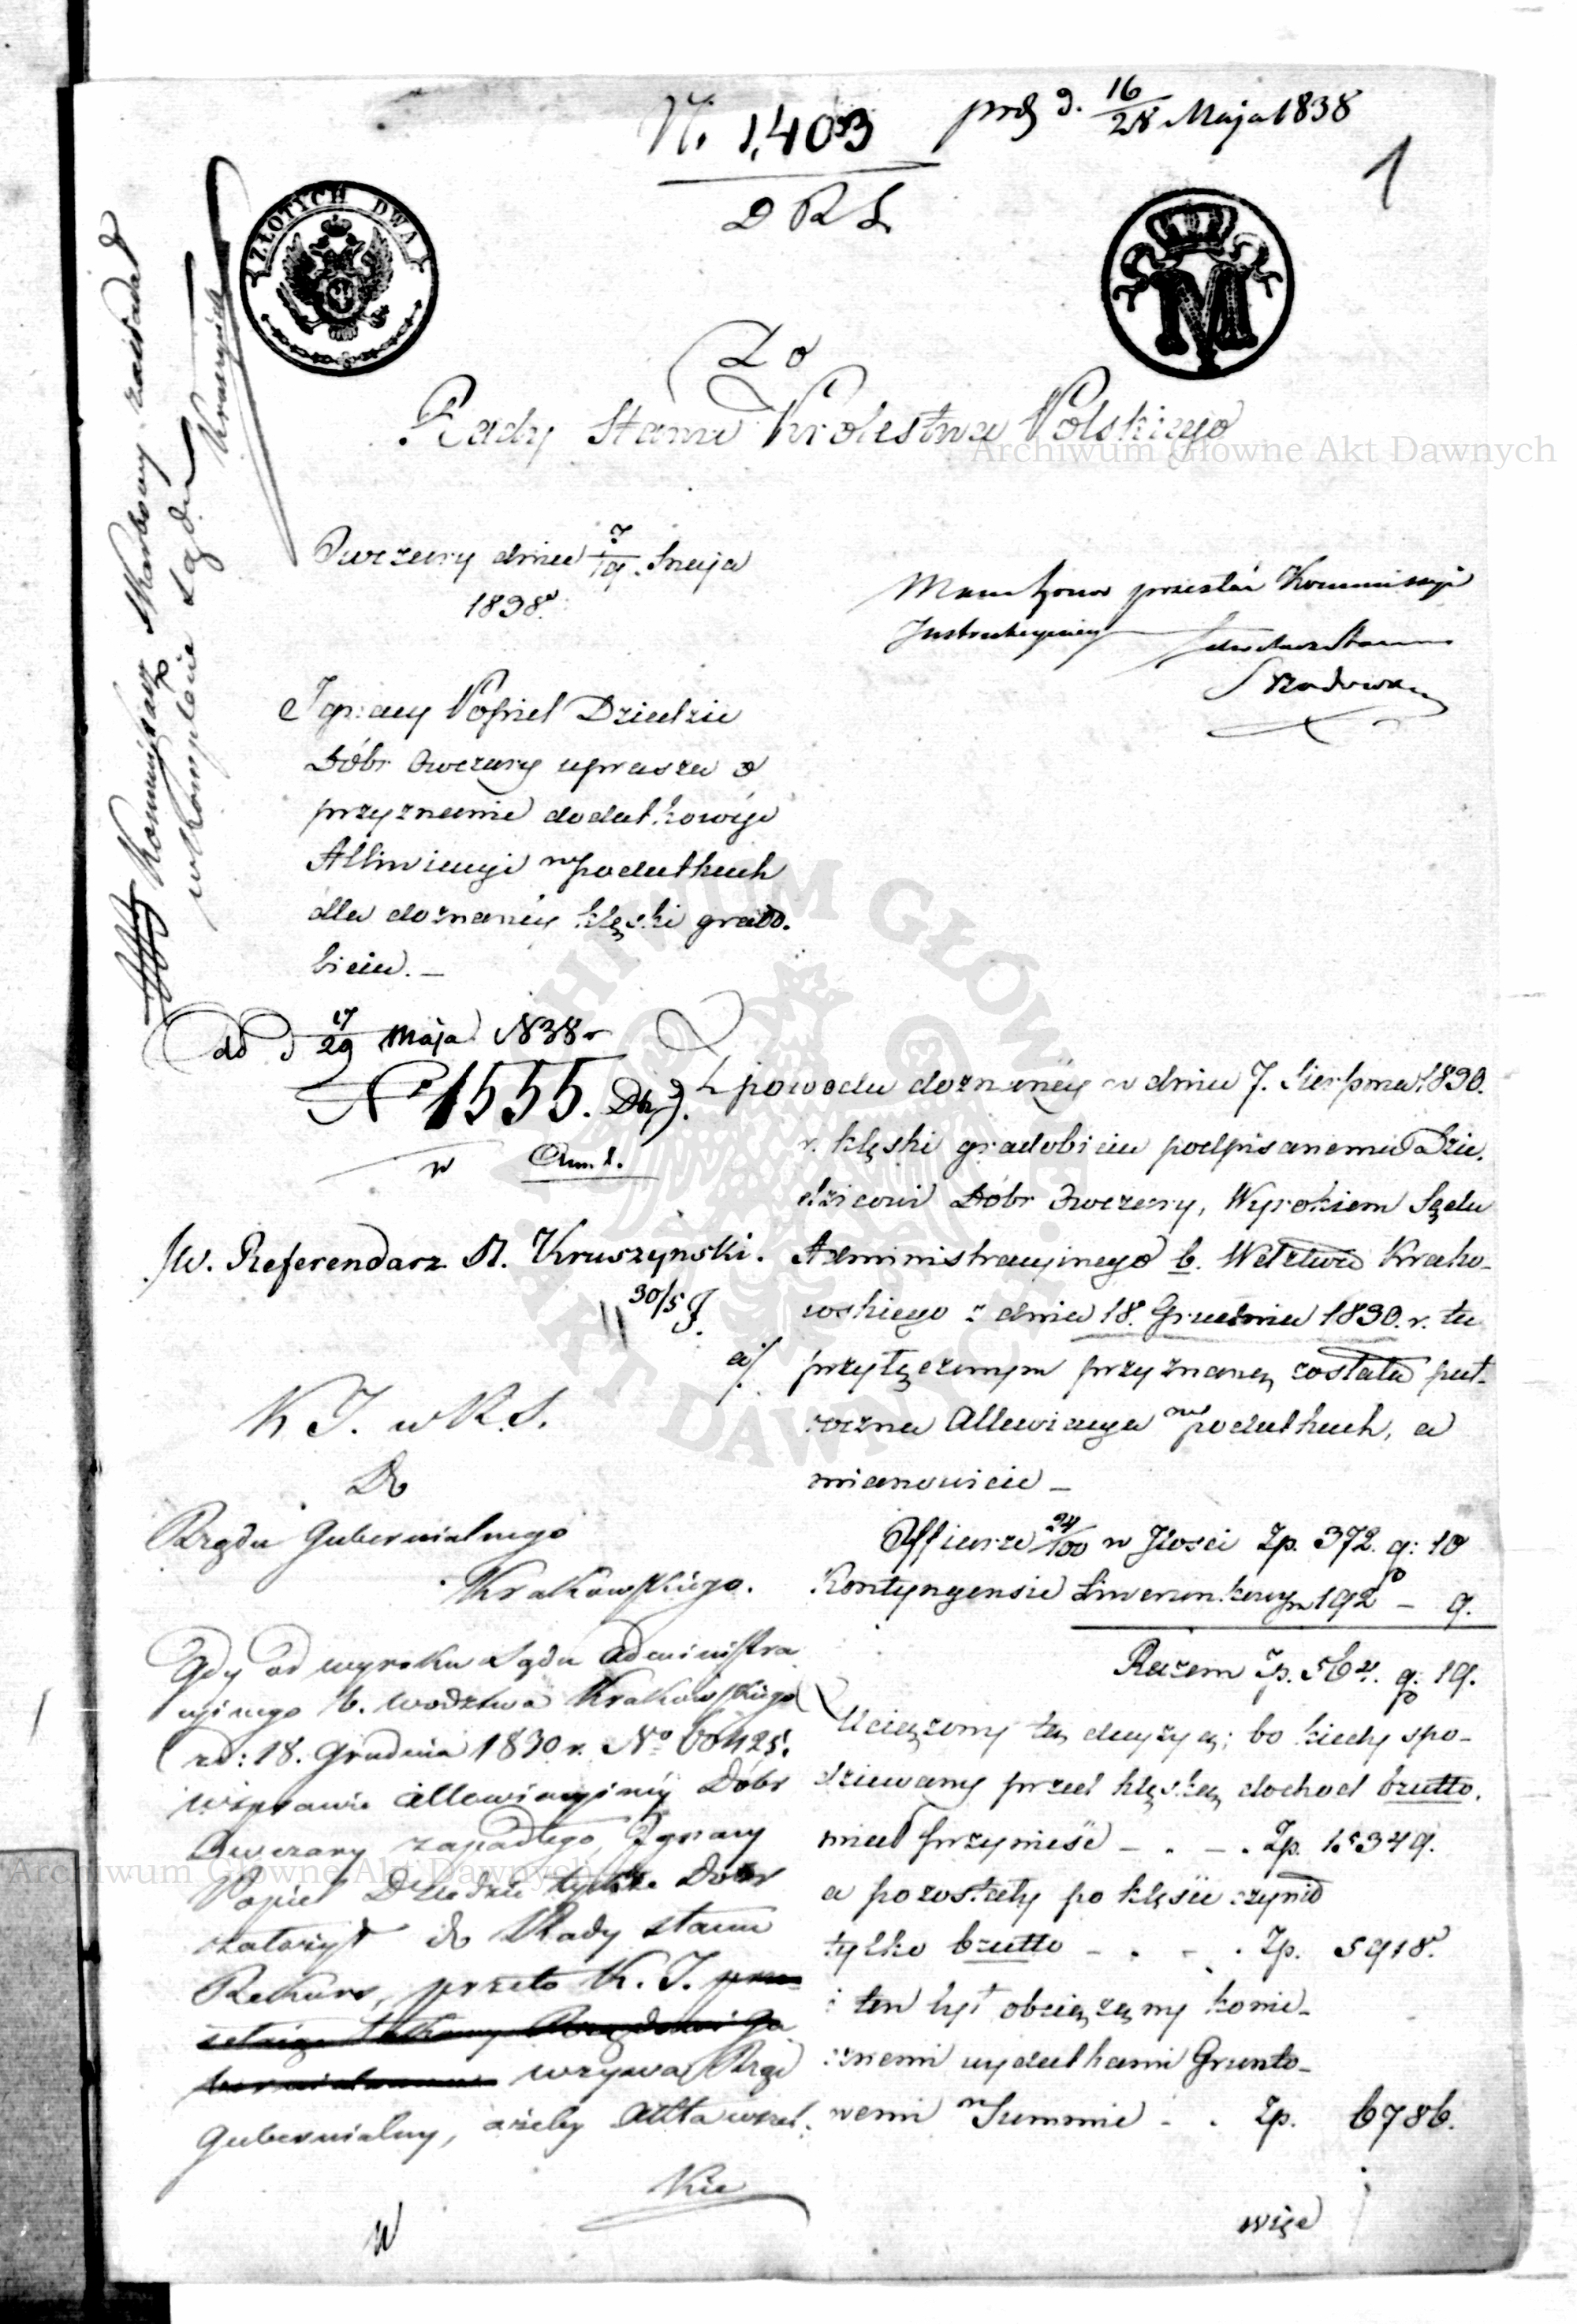 N. 1,403
prez d. 16/28 Maja 1838
1
D R S
ZŁOTYCH DWA
M
Do
Rady Stanu Krolestwa Polskiego
Archiwum Główne Akt Dawnych
Owczary dnia 7/19. Maja
1838.
przesłać Kommissyi
Instrukcyiney
Ignacy Popiel Dziedzic
Dóbr Owczary uprasza o
przyznanie dodatkowéj
Allewiacyi w podatkach
dla doznanéy klęski grado-
bicia. —
Kommissarz Skarbowy zasiadał
w komplecie Sądu
Kruszyński
do d 17/29 Maja 1838 r
No 1555. Dz.
w
JW. Referendarz St. Kruszyński.
30/5
K J. w R. S.
Do
Rządu Gubernialnego
Krakowskiego.
Gdy od wyroku Sądu Administra
cyinego b. Wodztwa Krakowskiego
zd: 18. Grudnia 1830 r. No 60425.
w sprawie allewiacyinéy Dóbr
Owczary zapadłego, Ignacy
Popiel Dziedzic tychże Dóbr
założył do Rady Stanu
Rekurs, przeto K. J.
wzywa Rząd
Gubernialny, ażeby Akta wszel-
kie
Z powodu doznanéy w dniu 7. Sierpnia 1830.
r. klęski gradobicia podpisanemu Dzie-
dzicowi Dóbr Owczary, Wyrokiem Sądu
Administracyjnego b. Wdztwa Krako-
wskiego z dnia 18. Grudnia 1830. r. tu
a/. przyłączonym przyznaną została pół-
roczna Allewiacya w podatkach, a
mianowicie —
Offiarze 24/100 w Ilości Zp. 372. g: 10
Kontyngensie Liwerunkowym 192 – 9.
Razem Zp. 564. g: 19.
Uciążony tą decyzyą; bo kiedy spo-
dziewany przed klęską dochod brutto.
miał przynieść – . – . Zp. 15349.
a pozostały po klęsce czynił
tylko brutto – . – . Zp. 5918.
i ten był obciążony konie-
cznemi wydatkami Grunto-
wemi w Summie – . Zp. 6786.
więc
ARCHIWUM GŁÓWNE AKT DAWNYCH
Archiwum Główne Akt Dawnych